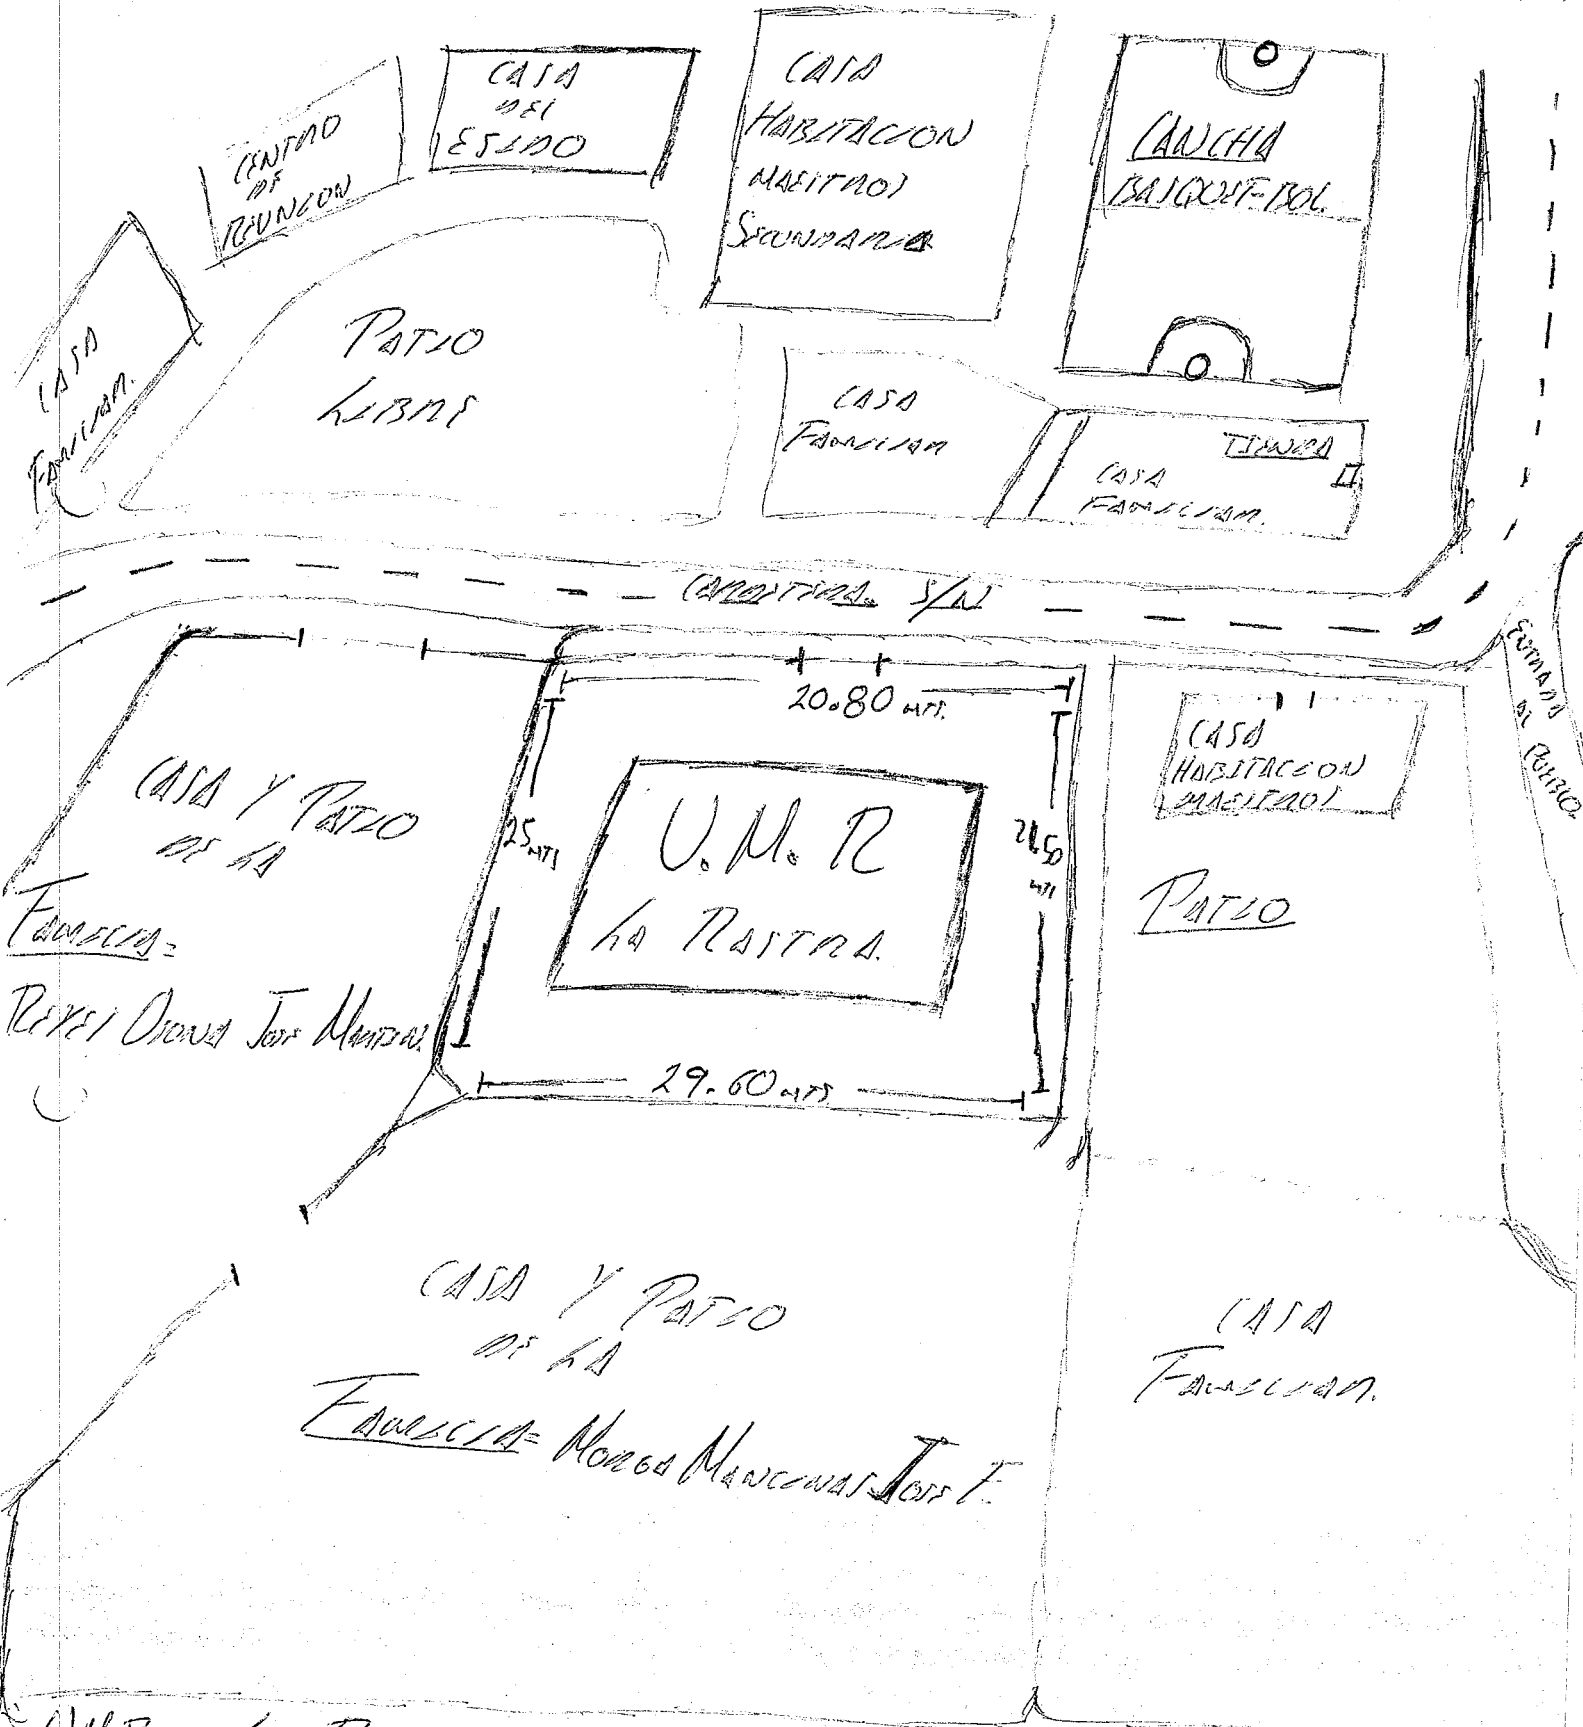 CASA
DEL
EJIDO
CENTRO
DE
REUNION
CASA
HABITACION
MAESTROS
SECUNDARIA
CANCHA
BASQUET-BOL
CASA
FAMILIAR.
PATIO
LIBRE
CASA
FAMILIAR
TIENDA
CASA
FAMILIAR.
CARRETERA. S/N
ENTRADA
AL
PUEBLO.
20.80 MTS.
CASA Y PATIO
DE LA
FAMILIA=
REYES OSONA JOSE MARTIN.
25 MTS
U.M.R
LA RASTRA.
MTS
29.60 MTS
CASA
HABITACION
MAESTROS
PATIO
CASA Y PATIO
DE LA
FAMILIA= MORGA MANCINAS JOSE F.
CASA
FAMILIAR.